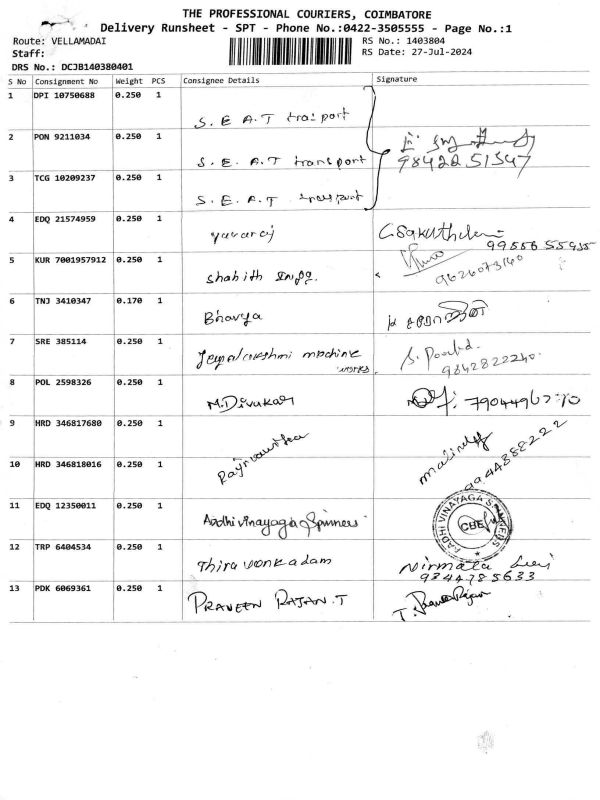 THE PROFESSIONAL COURIERS, COIMBATORE
Delivery Runsheet - SPT - Phone No.:0422-3505555 - Page No.:1
Route: VELLAMADAI RS No.: 1403804
Staff: RS Date: 27-Jul-2024
DRS No.: DCJB140380401
S No Consignment No Weight PCS Consignee Details Signature
1 DPI 10750688 0.250 1 S. E A.T transport
2 PON 9211034 0.250 1 S. E. A.T transport 9842251547
3 TCG 10209237 0.250 1 S. E. A.T. transport
4 EDQ 21574959 0.250 1 yuvaraj
5 KUR 7001957912 0.250 1 Shahith 9626073140
6 TNJ 3410347 0.170 1 Bhavya
7 SRE 385114 0.250 1 Jeyalakshmi machine works. 9842822240.
8 POL 2598326 0.250 1 M.Divakar
9 HRD 346817680 0.250 1
10 HRD 346818016 0.250 1 9944388222
11 EDQ 12350011 0.250 1 Aadhi vinayaga Spinners AADHI VINAYAGA SPINNERS CBE
12 TRP 6404534 0.250 1 Thiru vonkadam Nirmala
9844785633
13 PDK 6069361 0.250 1 PRAVEEN RAJAN.T